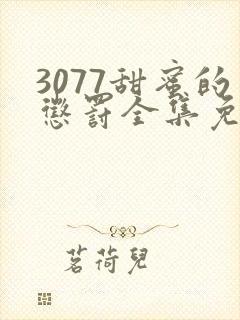 3077甜蜜的
惩罚全集免
茗荷兒